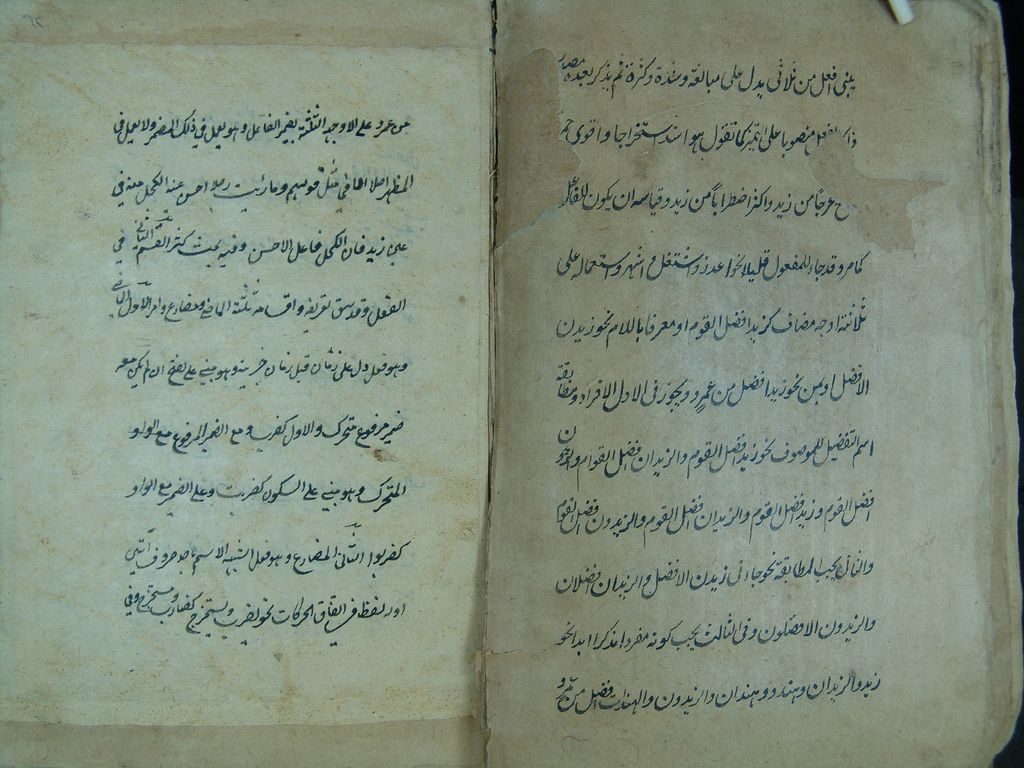 يبنى افعل من ثلاثى يدل على مبالغة وشدة وكثرة ثم يذكر بعده مصدر
ذلك الفعل منصوبا على التميز كما تقول هو اشد استخراجا واقوى حمرة
من زيد واكثر اضطرابا من زيد وقياسه ان يكون للفاعل
كما مر وقد جاء للمفعول قليلا نحو اعذر واشغل و اشهر واستعماله على
ثلاثة اوجه مضاف كزيد افضل القوم او معرفا باللام نحو زيدن
الافضل او بمن نحو زيد افضل من عمرو ويجوز فى الاول الافراد ومطابقة
اسم التفضيل للموصوف نحو زيد افضل القوم والزيدان افضل القوم والزيدون
افضل القوم وزيد افضل القوم والزيدان افضلا القوم والزيدون افضلو القوم
والثانى يجب المطابقة نحو جاءنى زيدن الافضل والزيدان الافضلان
والزيدون الافضلون وفى الثالث يجب كونه مفردا مذكرا ابدا نحو
زيد والزيدان وهند و وهندان والزيدون والهندات افضل من عمرو
من عمرو على الاوجه الثلثة يضمر الفاعل وهو يعمل في ذلك المضمر ولا يعمل في
المظهر اصلا الا في مثل قولهم وما رئيت رجلا احسن عينه الكحل منه في
عين زيد فان الكحل فاعل لاحسن وفيه بحث القسم الثانى في
الفعل وقد سبق تعريفه واقسامه ثلثة الماضى ومضارع وامر الاول الماضى
وهو فعل دل على زمان قبل زمان وهو مبنى على الفتح ان لم يكن معه
ضمير مرفوع متحرك ولا واو كضرب ومع الضمير المرفوع مع الواو
المتحرك وهو مبنى على السكون كضربت وعلى الضم مع الواو
كضربوا الثانى المضارع وهو فعل اشبه الاسم باحد حروف اتين
اوله لفظا في اتفاق الحركات نحو يضرب ويستخرج كضارب ومستخرج وفي